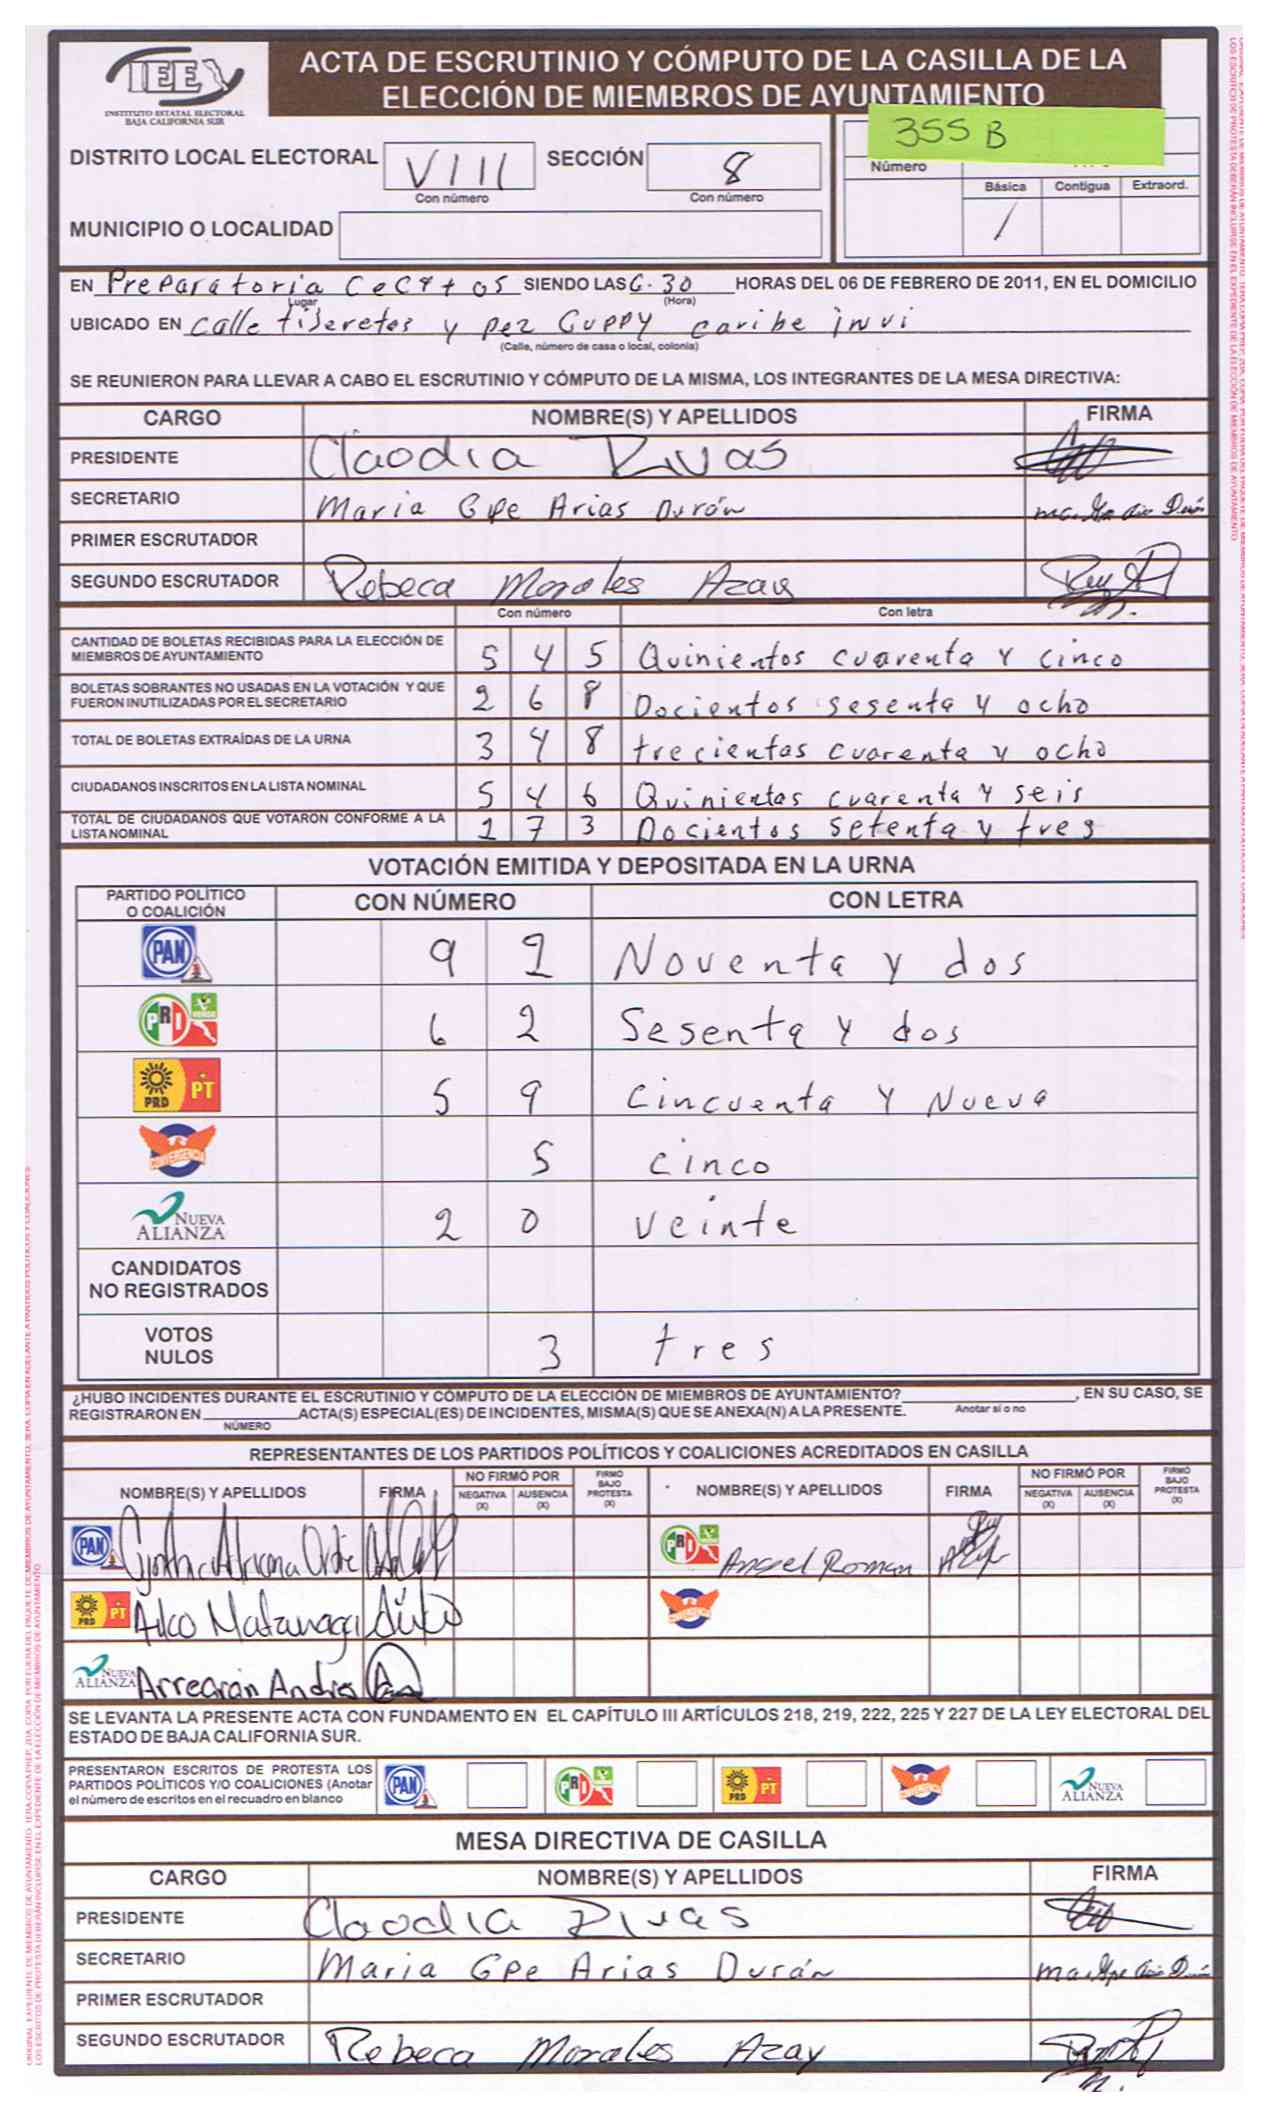 IEE
INSTITUTO ESTATAL ELECTORAL
BAJA CALIFORNIA SUR
ACTA DE ESCRUTINIO Y CÓMPUTO DE LA CASILLA DE LA
ELECCIÓN DE MIEMBROS DE AYUNTAMIENTO
355 B
DISTRITO LOCAL ELECTORAL VIII SECCIÓN 8
Con número Con número
Número
Básica Contigua Extraord.
/
MUNICIPIO O LOCALIDAD
EN Preparatoria CeCyt 05 SIENDO LAS 6.30 HORAS DEL 06 DE FEBRERO DE 2011, EN EL DOMICILIO
Lugar (Hora)
UBICADO EN calle tijeretas y pez Guppy caribe invi
(Calle, número de casa o local, colonia)
SE REUNIERON PARA LLEVAR A CABO EL ESCRUTINIO Y CÓMPUTO DE LA MISMA, LOS INTEGRANTES DE LA MESA DIRECTIVA:
CARGO NOMBRE(S) Y APELLIDOS FIRMA
PRESIDENTE Claodia Rivas
SECRETARIO Maria Gpe Arias Durón
PRIMER ESCRUTADOR
SEGUNDO ESCRUTADOR Rebeca Morales Azay
Con número Con letra
CANTIDAD DE BOLETAS RECIBIDAS PARA LA ELECCIÓN DE
MIEMBROS DE AYUNTAMIENTO 5 4 5 Quinientos cuarenta y cinco
BOLETAS SOBRANTES NO USADAS EN LA VOTACIÓN Y QUE
FUERON INUTILIZADAS POR EL SECRETARIO 2 6 8 Docientos sesenta y ocho
TOTAL DE BOLETAS EXTRAÍDAS DE LA URNA 3 4 8 trecientas cuarenta y ocho
CIUDADANOS INSCRITOS EN LA LISTA NOMINAL 5 4 6 Quinientos cuarenta y seis
TOTAL DE CIUDADANOS QUE VOTARON CONFORME A LA
LISTA NOMINAL 2 7 3 Docientos setenta y tres
VOTACIÓN EMITIDA Y DEPOSITADA EN LA URNA
PARTIDO POLÍTICO
O COALICIÓN CON NÚMERO CON LETRA
PAN 9 2 Noventa y dos
PRI VERDE 6 2 Sesenta y dos
PRD PT 5 9 Cincuenta y Nueve
CONVERGENCIA 5 cinco
NUEVA
ALIANZA 2 0 veinte
CANDIDATOS
NO REGISTRADOS
VOTOS
NULOS 3 tres
¿HUBO INCIDENTES DURANTE EL ESCRUTINIO Y CÓMPUTO DE LA ELECCIÓN DE MIEMBROS DE AYUNTAMIENTO? , EN SU CASO, SE
REGISTRARON EN ACTA(S) ESPECIAL(ES) DE INCIDENTES, MISMA(S) QUE SE ANEXA(N) A LA PRESENTE. Anotar sí o no
NÚMERO
REPRESENTANTES DE LOS PARTIDOS POLÍTICOS Y COALICIONES ACREDITADOS EN CASILLA
NOMBRE(S) Y APELLIDOS FIRMA NO FIRMÓ POR NEGATIVA (X) AUSENCIA (X) FIRMÓ BAJO PROTESTA (X) NOMBRE(S) Y APELLIDOS FIRMA NO FIRMÓ POR NEGATIVA (X) AUSENCIA (X) FIRMÓ BAJO PROTESTA (X)
PAN PRI Angel Roman
PRD PT CONVERGENCIA
NUEVA
ALIANZA Arrearan Andres
SE LEVANTA LA PRESENTE ACTA CON FUNDAMENTO EN EL CAPÍTULO III ARTÍCULOS 218, 219, 222, 225 Y 227 DE LA LEY ELECTORAL DEL
ESTADO DE BAJA CALIFORNIA SUR.
PRESENTARON ESCRITOS DE PROTESTA LOS
PARTIDOS POLÍTICOS Y/O COALICIONES (Anotar
el número de escritos en el recuadro en blanco
PAN PRI PRD PT CONVERGENCIA NUEVA ALIANZA
MESA DIRECTIVA DE CASILLA
CARGO NOMBRE(S) Y APELLIDOS FIRMA
PRESIDENTE Claodia Rivas
SECRETARIO Maria Gpe Arias Durón
PRIMER ESCRUTADOR
SEGUNDO ESCRUTADOR Rebeca Morales Azay